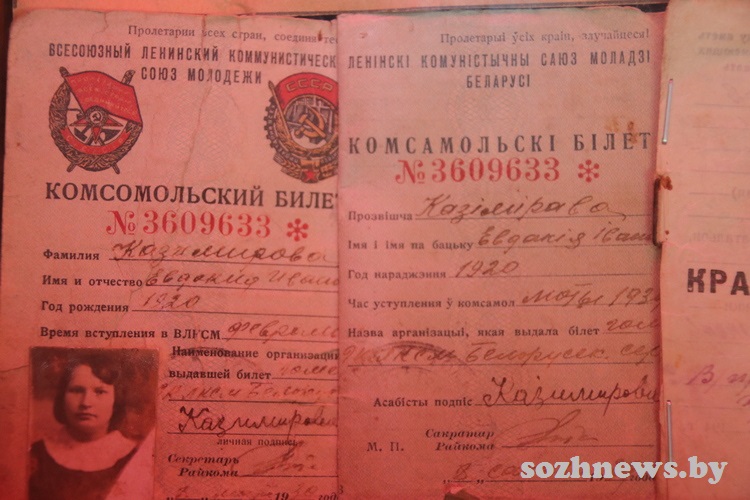 Пролетарии всех стран, соединя
ВСЕСОЮЗНЫЙ ЛЕНИНСКИЙ КОММУНИСТИЧЕСК
СОЮЗ МОЛОДЕЖИ
СССР
КОМСОМОЛЬСКИЙ БИЛЕТ
№3609633 *
Фамилия Казимирова
Имя и отчество Евдокия Ивано
Год рождения 1920
Время вступления в ВЛКСМ
Наименование организаци
выдавшей билет
Казимирова
личная подпись
Секретарь
Райкома
Пролетарыі ўсіх краін, злучайцеся!
ЛЕНІНСКІ КОМУНІСТЫЧНЫ САЮЗ МОЛАДЗІ
БЕЛАРУСІ
КОМСАМОЛЬСКІ БІЛЕТ
№3609633 *
Прозвішча Казімірава
Імя і імя па бацьку Евдакія Іван
Год нараджэння 1920
Час уступлення ў комсамол
Назва арганізацыі, якая выдала білет гом
Белорусск.
Асабісты подпіс Казимирова
М. П.
Сакратар
Райкома
КРА
sozhnews.by